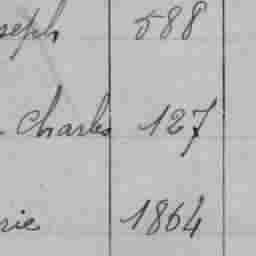 seph 588
Charles 127
rie 1864